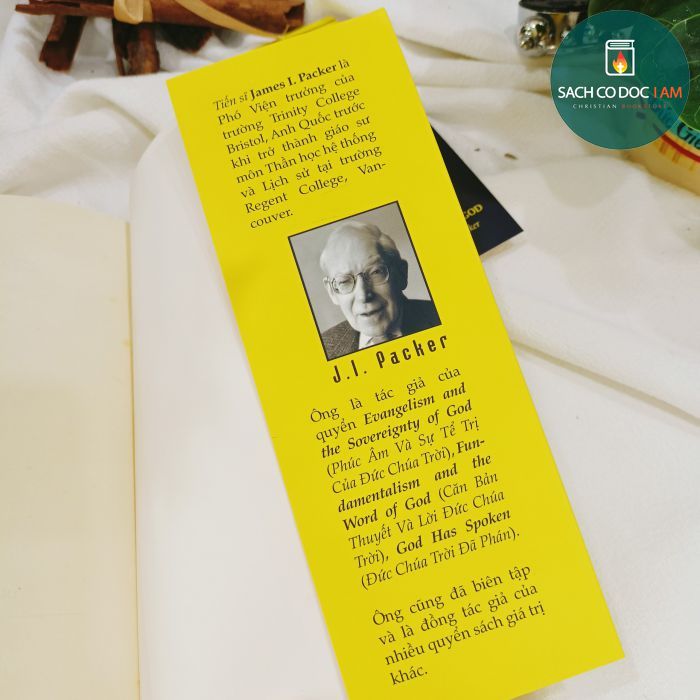 SACH CO DOC I AM
CHRISTIAN BOOKSTORE
Tiến sĩ James I. Packer là
Phó Viện trưởng của
trường Trinity College
Bristol, Anh Quốc trước
khi trở thành giáo sư
môn Thần học hệ thống
và Lịch sử tại trường
Regent College, Van-
couver.
J.I. Packer
Ông là tác giả của
quyển Evangelism and
the Sovereignty of God
(Phúc Âm Và Sự Tể Trị
Của Đức Chúa Trời), Fun-
damentalism and the
Word of God (Căn Bản
Thuyết Và Lời Đức Chúa
Trời), God Has Spoken
(Đức Chúa Trời Đã Phán).
Ông cũng đã biên tập
và là đồng tác giả của
nhiều quyển sách giá trị
khác.
GOD